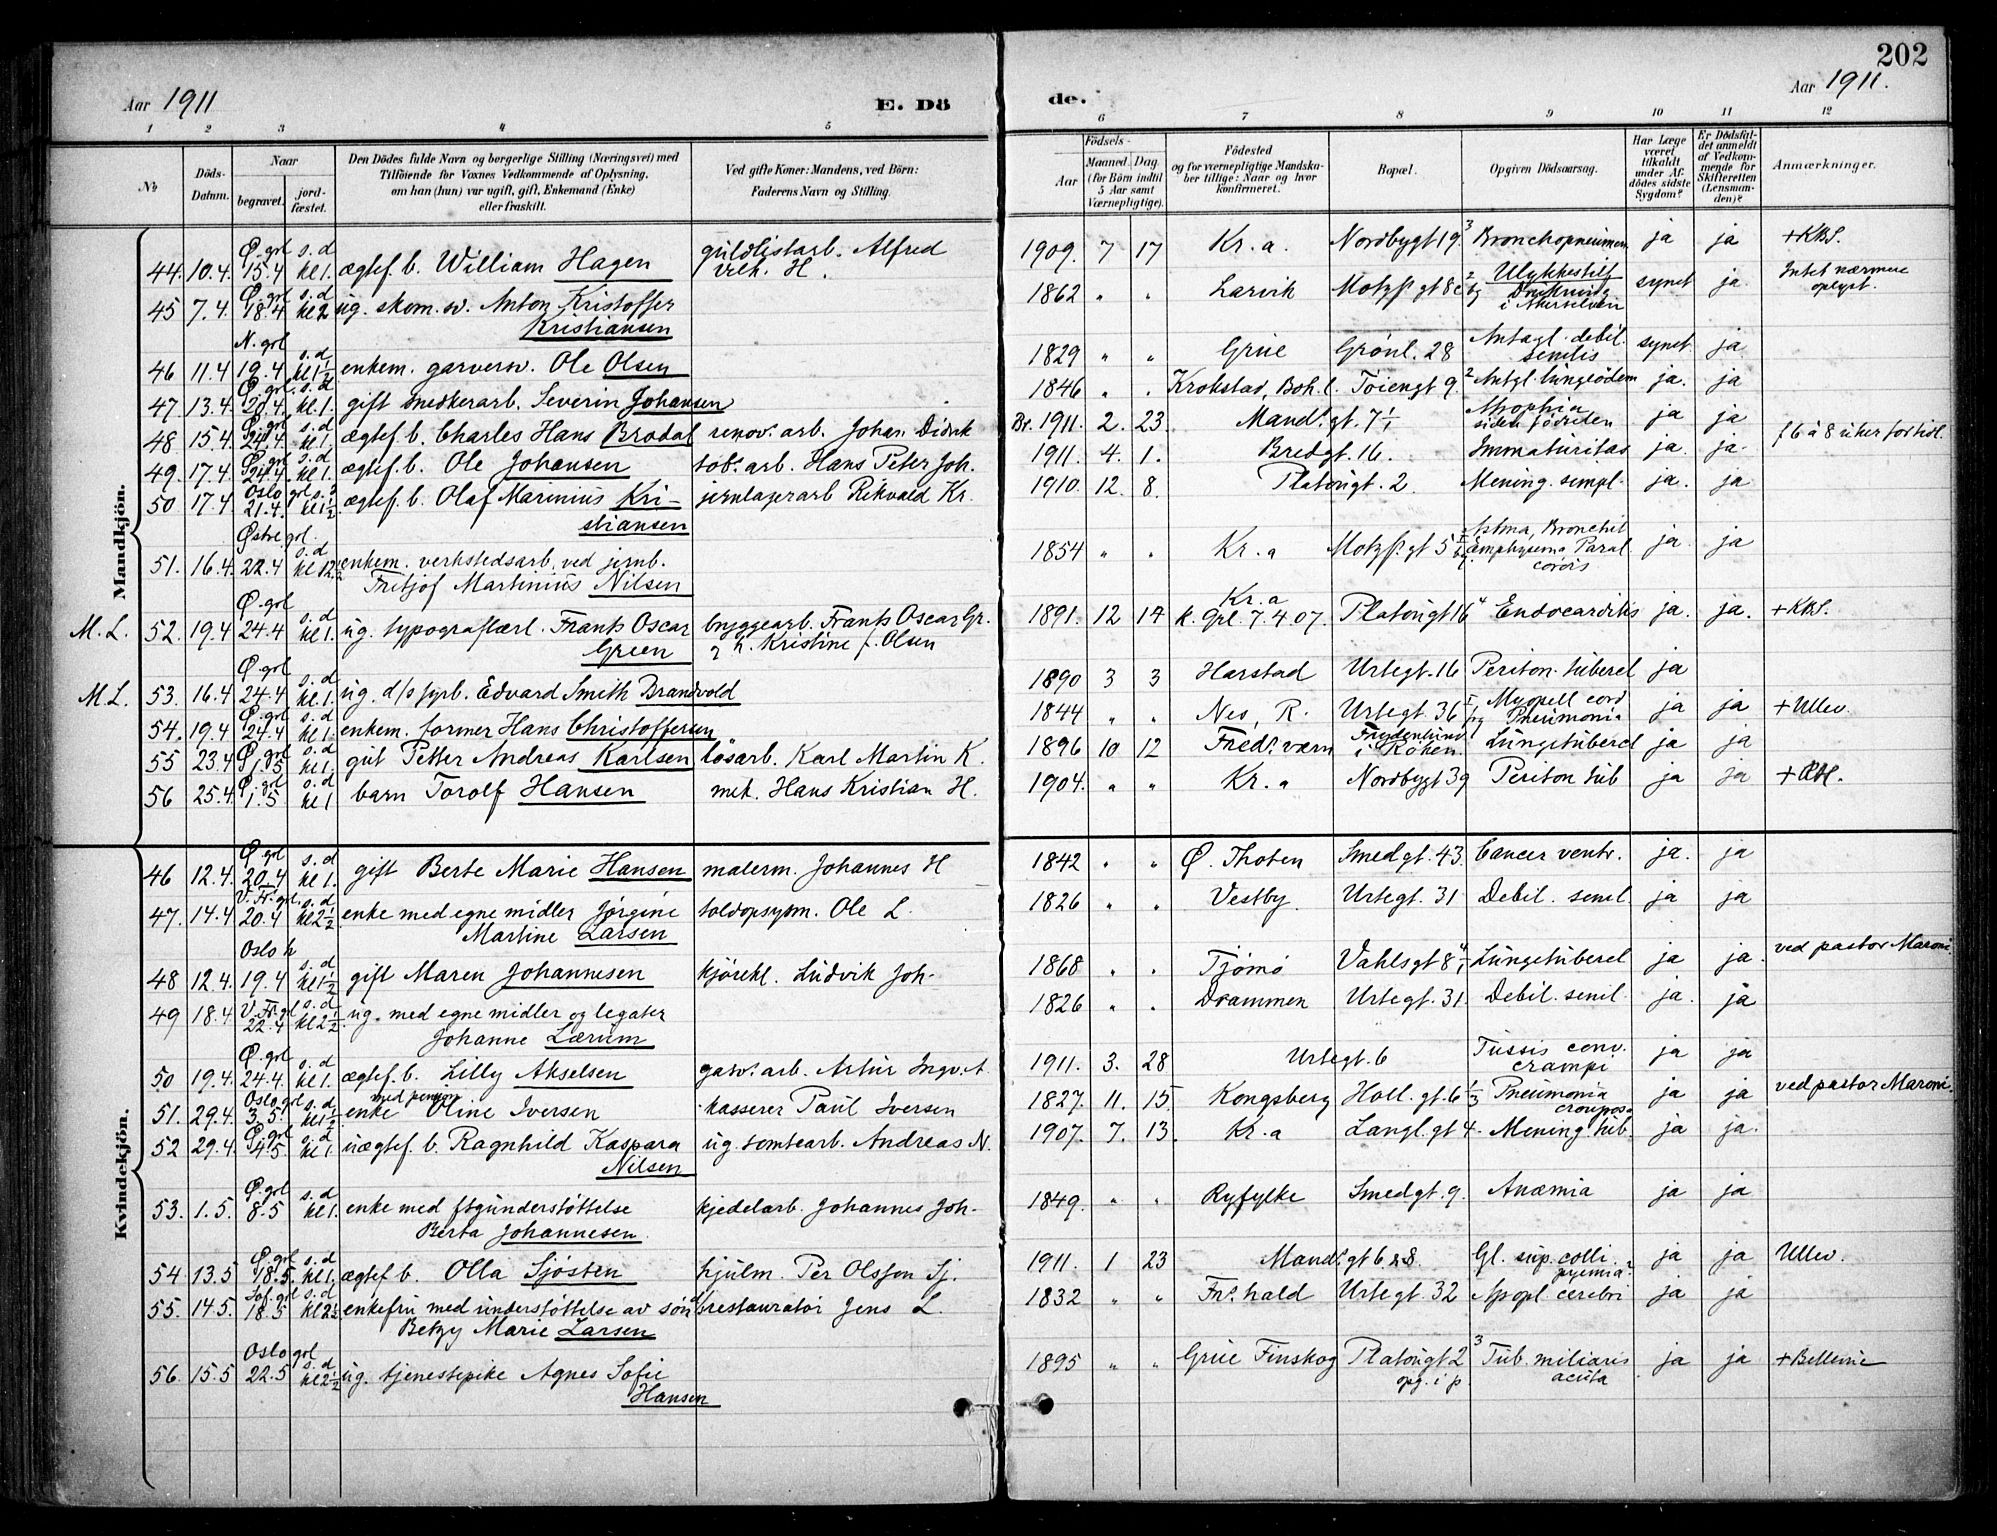 202
Aar 1911 E. Dö de. Aar 1911.
1 2 3 4 5 6 7 8 9 10 11 12
No Döds-Datum. Naar begravet. jord-fæstet. Den Dödes fulde Navn og borgerlige Stilling (Næringsvei) med Tilföiende for Voxnes Vedkommende af Oplysning, om han (hun) var ugift, gift, Enkemand (Enke) eller fraskilt. Ved gifte Koner: Mandens, ved Börn: Faderens Navn og Stilling. Födsels- Aar Maaned. Dag. (for Börn indtil 5 Aar samt Værnepligtige). Födested og for værnepligtige Mandska-ber tillige: Naar og hvor konfirmeret. Bopæl. Opgiven Dödsaarsag. Har Læge været tilkaldt under Af-dödes sidste Sygdom? Er Dödsfal-det anmeldt af Vedkom-mende for Skifteretten (Lensman-den)? Anmærkninger.
Mandkjön.
44. 10.4. Ø. grl 15.4 s. d kl 1. ægtef. b. William Hagen guldlistarb. Alfred Vilh. H. 1909. 7 17 Kr. a. Nordbygt 19.3 Bronchopneumon ja ja + KBS.
45 7.4. Ø. grl 18.4 s. d kl 2 ug. skom. sv. Anton Kristoffer 1862 " " Larvik Motzf. gt 8c Ulykkestilf Drukning i Akerselven synet ja. Intet nærmere oplyst.
Kristiansen
46 11.4 N. grl 19.4 s. d kl 1½ enkem. garversv. Ole Olsen 1829 " " Grue Grønl. 28 Antagl. debil. senilis synet ja
47. 13.4. Ø. grl. 20.4. s. d kl. 1. gift snedkerarb. Severin Johansen 1846 " " Krokstad, Boh. l. Töiengt 9.2 Antgl. lungeödem ja. ja
48 15.4. Ø. grl 24.4. s. d kl 1. ægtef. b. Charles Hans Brodal renov. arb. Johan Didrik Br. 1911. 2. 23. Mand. gt. 7 Atrophia siden födselen ja ja
49. 17.4. Ø. grl 24.4. s. d kl 1. ægtef. b. Ole Johansen tob. arb. Hans Peter Joh. 1911. 4. 1. Bredgt. 16. Immaturitas ja ja. f 6 à 8 uker for tidl.
50 17.4. Oslo grl 21.4. s. d kl 1½ ægtef. b. Olaf Marinius Kri- jernlagerarb Rikvald Kr. 1910. 12. 8. Platougt. 2 Mening. simpl. ja. ja
stiansen
51. 16.4. Østre grl. 22.4 s. d kl 12½ enkem. verkstedsarb. ved jernb. 1854 " " Kr. a Motzf. gt 5 Astma, Bronchit emphysema Paral cordis ja. ja
Fritjof Martinius Nilsen
M. L. 52. 19.4 Ø. grl 24.4 s. d kl 1. ug. typograflærl. Frants Oscar bryggearb. Frants Oscar Gr. 1891. 12 14 Kr. a k. Grl. 7.4 07. Platougt 16 4 Endocarditis ja. ja. + KBS.
Green h. Kristine f. Olsen
M. L. 53. 16.4 Ø. grl 24.4 s. d kl 1. ug. d/s fyrb. Edvard Smith Brandvold 1890 3 3 Harstad Urtegt. 16 Periton. tubercl ja
54. 19.4 Ø. grl 24.4 s. d kl 1. enkem. former Hans Christoffersen 1844 " " Nes, R. Urtegt. 36 Pneumonia ja ja + Ullev.
55 23.4 Ø. grl 1.5 s. d kl 1. gut Petter Andreas Karlsen løsarb. Karl Martin K. 1896 10 12 Fred. værn Frydenlund i Röken Lungetubercl ja ja
56 25.4. Ø. grl 1.5 s. d kl 1 barn Torolf Hansen mek. Hans Kristian H. 1904. " " Kr. a Nordbygt 39 Periton tub ja ja
Kvindekjön.
46 12.4. Ø. grl 20.4 s. d kl 1. gift Berte Marie Hansen malerm. Johannes H 1842 " " Ø. Thoten Smedgt. 43. Cancer ventr. ja. ja
47. 14.4 V. Fr. grl. 20.4 s. d kl 2½ enke med egne midler Jörgine toldopsynm. Ole L. 1826 " " Vestby. Urtegt. 31 Debil. senil ja ja
Martine Larsen
48 12.4. Oslo h 19.4 s. d kl 1½ gift Maren Johannesen kjörekl. Ludvik Joh- 1868 " " Tjömö Vahlsgt 8 Lungetubercl ja ja. ved pastor Maroni.
49 18.4 V. Fr. grl 22.4 s. d kl 2½ ug. med egne midler og legater 1826 " " Drammen Urtegt. 31. Debil. senil. ja. ja
Johanne Lærum
50 19.4. Ø. grl 24.4. s. d kl 1. ægtef. b. Lilly Akselsen gasv. arb. Artur Ingv. A 1911. 3. 28 Urtegt. 6 Tussis conv. crampi ja ja
51. 29.4. Oslo grl 3.5 s. d kl 1½ enke med pension Oline Iversen kasserer Paul Iversen 1827. 11. 15 Kongsberg Holl. gt. 6 Pneumonia crouposa ja ja ved pastor Maroni.
52 29.4. Ø. grl 4.5 s. d kl 1. uægtef. b. Ragnhild Kaspara ug. tomtearb. Andreas N. 1907. 7. 13. Kr. a Langl. gt 4. Mening tub. ja ja.
Nilsen
53. 1.5. Ø. grl 8.5 s. d kl 1. enke med ftgunderstøttelse kjedelarb. Johannes Joh- 1849. " " Ryfylke Smedgt. 9. Anæmia ja ja
Berta Johannesen
54 13.5 Ø. grl 18.5. s. d kl 1. ægtef b. Olla Sjösten hjulm. Per Olsson Sj. 1911. 1 23 Mand. gt 6 & 8. Gl. sup. colli. pyemia? ja ja Ullev.
55. 14.5. Sof. grl 18.5 s. d kl 2½ enkefru med understøttelse av søn restauratör Jens L. 1832 " " Fr. hald Urtegt. 32 Apopl. cerebri ja ja
Betzy Marie Larsen
56. 15.5 Oslo grl 22.5 s. d kl 2½ ug. tjenestepike Agnes Sofie 1895 " " Grue Finskog Platougt 2 3 opg. i p Tub. miliaris acuta ja ja + Bellevue
Hansen